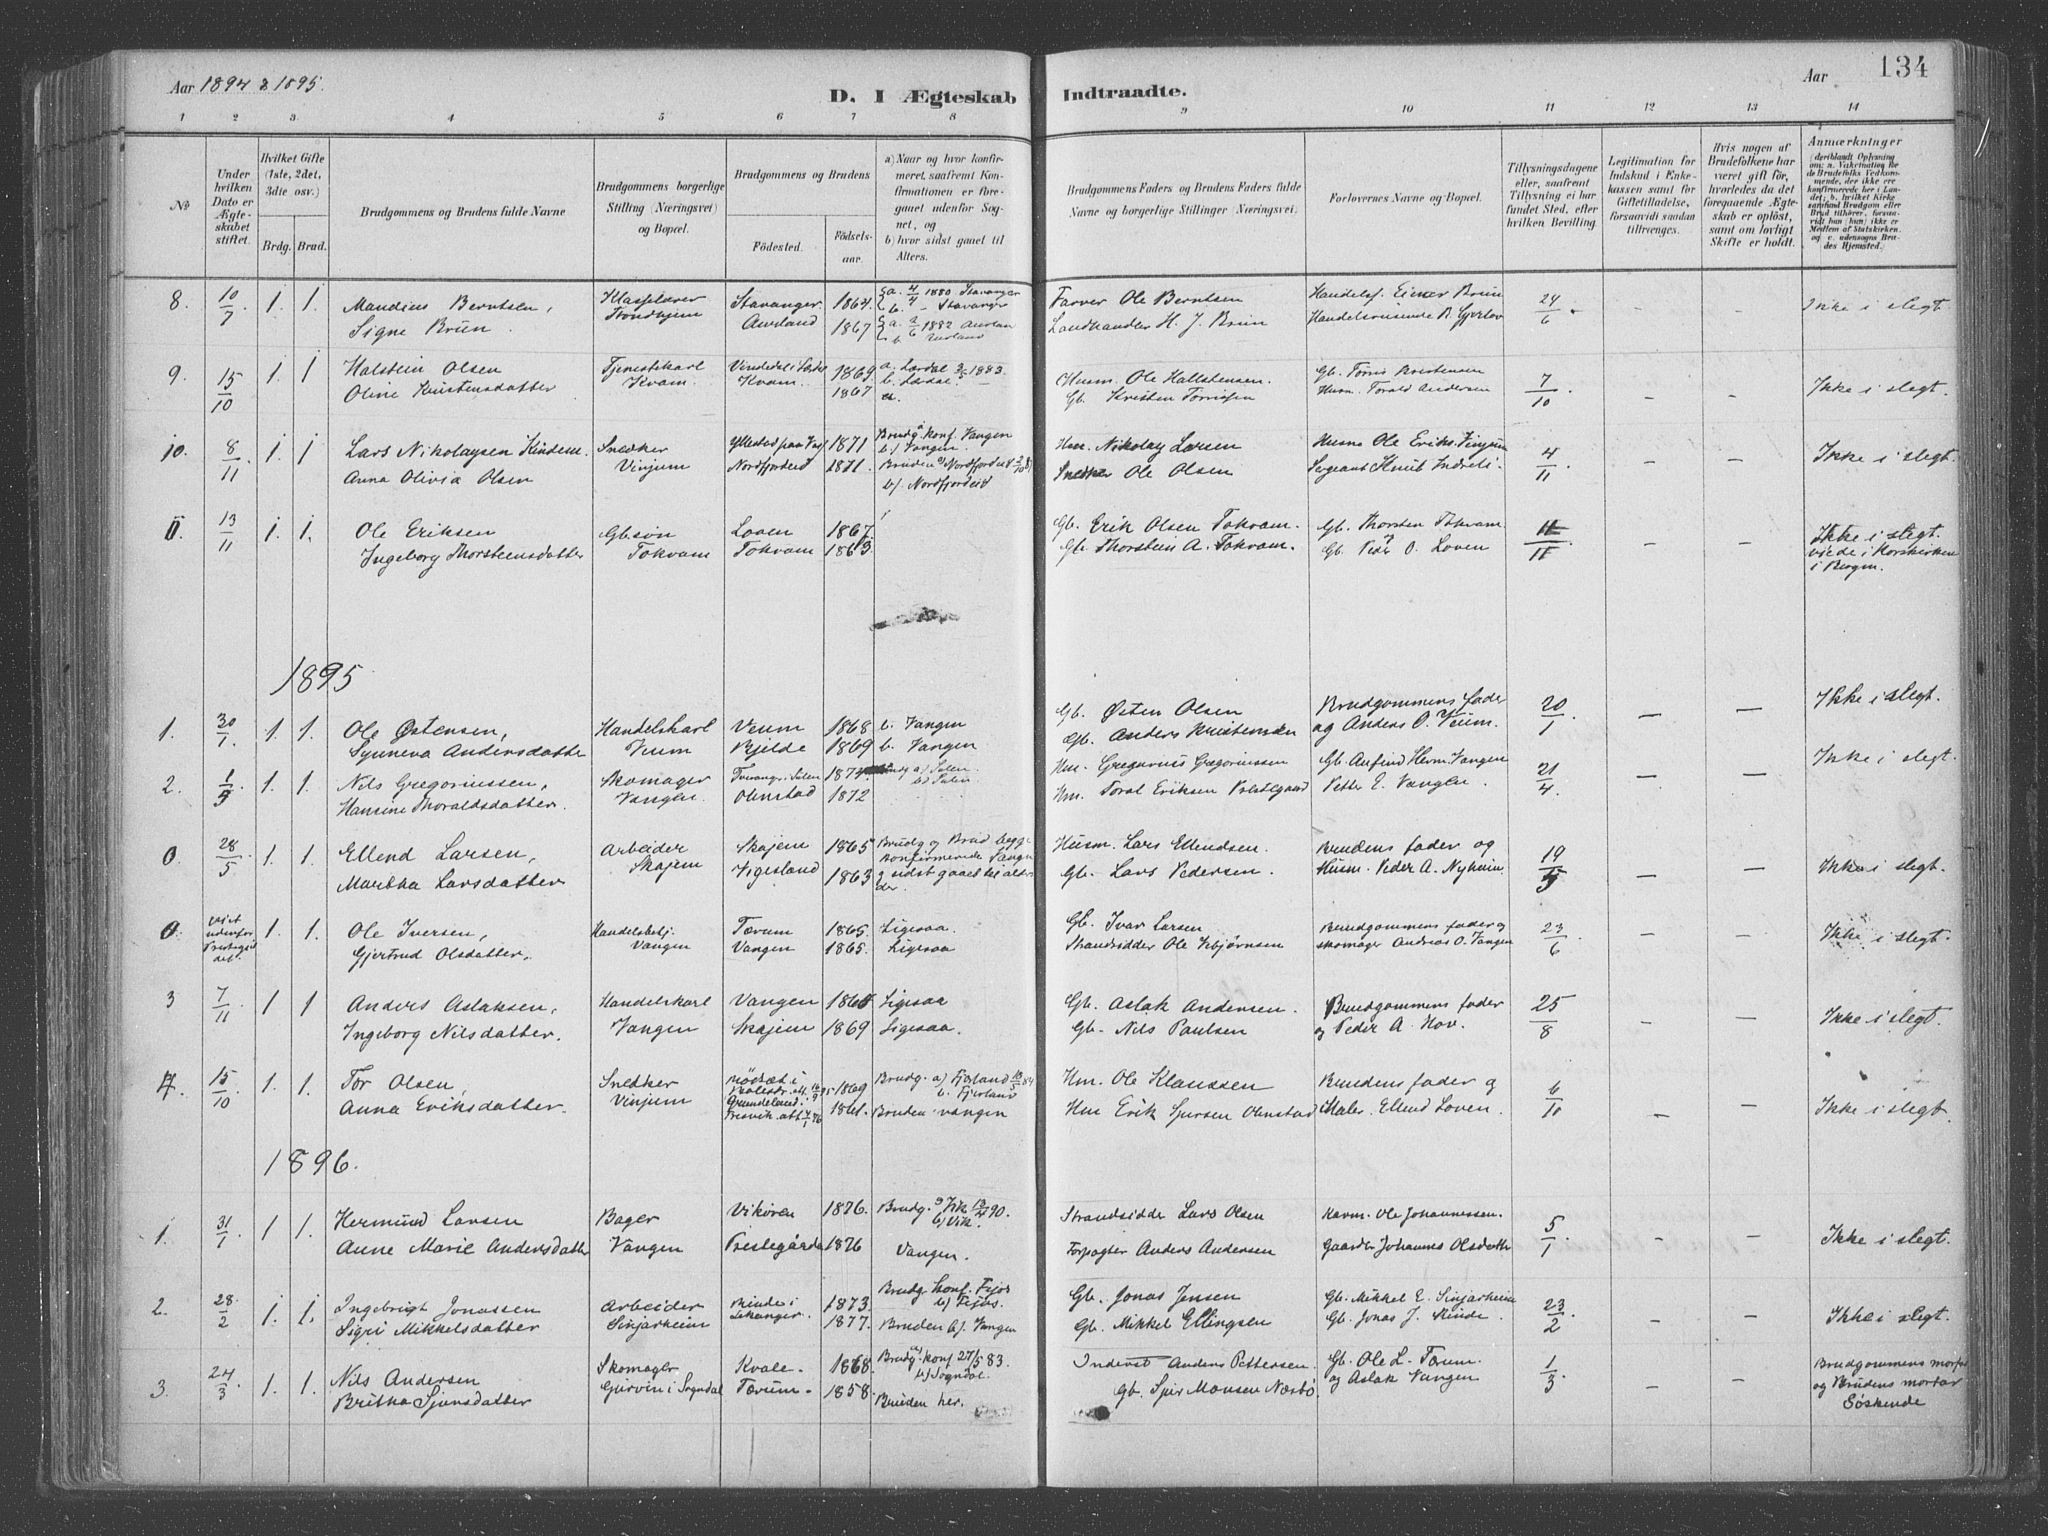 Aar 1894 & 1895.
D. I Ægteskab Indtraadte.
Aar 134
1 2 3 4 5 6 7 8 9 10 11 12 13 14
№
Under hvilken Dato er Ægteskabet stiftet.
Hvilket Gifte (1ste, 2det, 3dte osv.)
Brdg. Brud.
Brudgommens og Brudens fulde Navne
Brudgommens borgerlige Stilling (Næringsvei) og Bopæl.
Brudgommens og Brudens
Fødested.
Fødselsaar.
a) Naar og hvor konfirmeret, saafremt Konfirmationen er foregaaet udenfor Sognet, og
b) hvor sidst gaaet til Alters.
Brudgommens Faders og Brudens Faders fulde Navne og borgerlige Stillinger (Næringsvei).
Forlovernes Navne og Bopæl.
Tillysningsdagene eller, saafremt Tillysning ei har fundet Sted, efter hvilken Bevilling.
Legitimation for Indskud i Enkekassen samt for Giftetilladelse, forsaavidt saadan tiltrænges.
Hvis nogen af Brudefolkene har været gift før, hvorledes da det foregaaende Ægteskab er opløst, samt om lovligt Skifte er holdt.
Anmærkninger
8. 10/7 1. 1. Mandius Berntsen, Klasselærer Stavanger 1864 a. 4/4 1880 Stavanger Farver Ole Berntsen Handelsf. Einer Brun 24/6 Ikke i slegt.
Signe Brun. Trondhjem Aurland 1867 b. Stavanger a. 2/6 1882 Aurland b. Aurland Landhandler H. J. Brun Handelsreisende
9. 15/10 1. 1 Halstein Olsen Tjenestekarl 1869 a. Lærdal 1883. b. Lærdal Husm. Ole Hallstensen. Gb. Kristensen 7/10 – – Ikke i slegt.
Oline Kristensdatter Kvam Kvam. 1867 Gb. Kristen Torrisen Husm. Torald Andersen
10. 8/11 1. 1 Lars Nikolaysen Kindem Snedker 1871 Brudg. konf. Vangen b) Vangen. Hm. Nikolay Larsen Husm. Ole Eriks. Vinjum 4/11 – – Ikke i slegt.
Anna Olivia Olsen Vinjum Nordfjordeid 1871. Bruden a) Nordfjordeid b) Nordfjordeid Snedker Ole Olsen Sergeant Knut Indreli
11. 13/11 1. 1. Ole Eriksen Gb.søn Loven 1867. Gb. Erik Olsen Tokvam. Gb. Thorsten Tokvam 11/11 – – Ikke i slegt.
Ingeborg Thorsteensdatter Tokvam Tokvam 1863. Gb. Thorstein A. Tokvam. Gb. Peder O. Loven viede i Korskirken i Bergen.
1895
1. 30/1. 1. 1. Ole Østensen, Handelskarl Veum 1868 b. Vangen Gb. Østen Olsen Brudgommens fader 20/1 – – Ikke i slegt.
Synneva Andersdatter Veum Bjelde 1869 b. Vangen Gb. Anders Kristensen og Anders O. Veum.
2. 1/5 1. 1 Nils Gregoriussen, Skomager 1872. Brudg a) b) Hm. Gregorius Gregoriussen Gb. Anfind Herm. Vangen 21/4 – – Ikke i slegt.
Hansine Thoraldsdatter. Vangen. Olmstad 1872 Hm. Toral Eriksen Prestegaard Petter E. Vangen.
0. 28/5 1. 1. Ellend Larsen, Arbeider Skajem 1865 Brudg og Brud begge konfirmerede Vangen Husm. Lars Ellendsen. Brudens fader og 19/5 – – Ikke i slegt.
Martha Larsdatter Skajem Vigesland 1863 og sidst gaaet til alter der. Gb. Lars Pedersen. Husm. Peder A. Nyheim.
0. viet udenfor Prestegjeldet. 1. 1. Ole Iversen, Handelsbetj. Tærum 1865 Ligesaa. Gb. Ivar Larsen Brudgommens fader og 23/6 – – Ikke i slegt.
Gjertrud Olsdatter. Vangen Vangen 1865. Ligesaa Strandsidder Ole Esbjørnsen skomager Andreas O. Vangen
3 7/11 1 1 Anders Aslaksen, Handelskarl Vangen 1865 Ligesaa Gb. Aslak Andersen Brudgommens fader 25/8 – – Ikke i slegt.
Ingeborg Nilsdatter. Vangen Skajem 1869 Ligesaa. Gb. Nils Paulsen og Peder A. Hov.
4. 15/10 1. 1. Tor Olsen, Snedker 1869 Brudg. a) Fjærland b. Fjærland Hm. Ole Klaussen Brudens fader og 6/10 – – Ikke i slegt.
Anna Eriksdatter. Vinjum Grundeland i Fresvik att. 4/1 76 1861. Bruden. Vangen Hm Erik Sjursen Olmstad Maler. Ellend Loven.
1896.
1. 31/1 1. 1. Hermund Larsen Bager Vikøren 1876. Brudg. a) Vik 13/4 90. b) Vik. Strandsidder Lars Olsen Karm. Ole Johannessen. 5/1 – – Ikke i slegt.
Anne Marie Andersdatter Vangen Prestegården 1876 Vangen. Forpagter Anders Andersen Gaardbr. Johannes
2. 28/2 1. 1. Ingebrigt Jonassen Arbeider Rinde i 1873. Brudg konf. Fejos b) Fejos. Gb. Jonas Jensen Gb. Mikkel E. Sinjarheim 23/2 – – Ikke i slegt.
Sigri Mikkelsdatter Sinjarheim Lekanger. 1877. Bruden b). Vangen Gb. Mikkel Ellingsen Gb. Jonas J. Rinde.
3. 24/3 1. 1. Nils Andersen Skomager Kvale 1868. Brudg. a) konf 27/5 83. b) Sogndal. Inderst Anders Pettersen Gb. Ole L. Tærum. 1/3 – – Brudgommens morfar
Britha Sjursdatter Gurvin i Sogndal Tærum 1858. Bruden her. Gb. Sjur Monsen Næsbø og Aslak Vangen og Brudens mortar Søskende